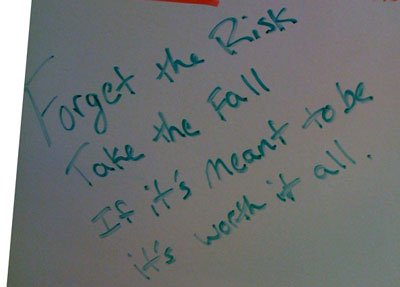 Forget the Risk
Take the Fall
If it's meant to be
it's worth it all.